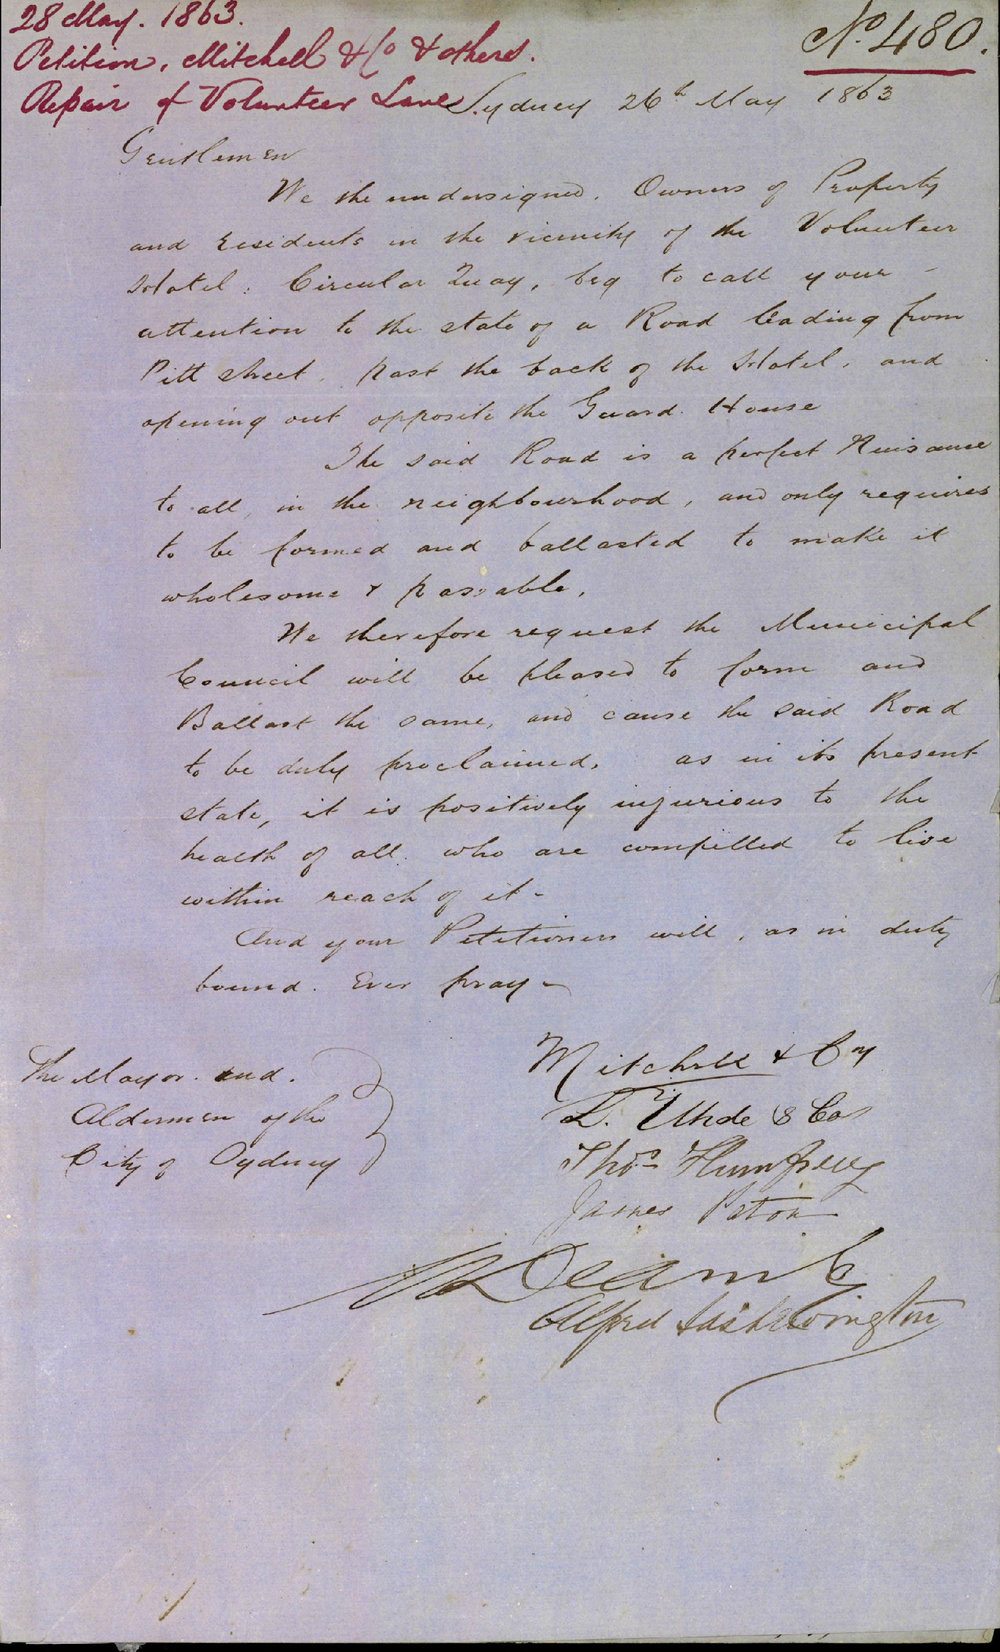 28 May. 1863.
No. 480.
Petition, Mitchell & Co & others.
Repair of Volunteer Lane
Sydney 26th May 1863
Gentlemen
We the undersigned, Owners of Property
and Residents in the vicinity of the Volunteer
Hotel, Circular Quay, beg to call your
attention to the state of a Road leading from
Pitt street, past the back of the Hotel, and
opening out opposite the Guard House
The said Road is a perfect Nuisance
to all, in the neighbourhood, and only requires
to be formed and ballasted to make it
wholesome & passable.
We therefore request the Municipal
Council will be pleased to form and
Ballast the same, and cause the said Road
to be duly proclaimed, as in its present
state, it is positively injurious to the
health of all who are compelled to live
within reach of it -
And your Petitioners will, as in duty
bound. Ever pray -
The Mayor and
Aldermen of the
City of Sydney
Mitchell & Coy
Uhde & Co
Thos Humfrey
James Paton
Alfred